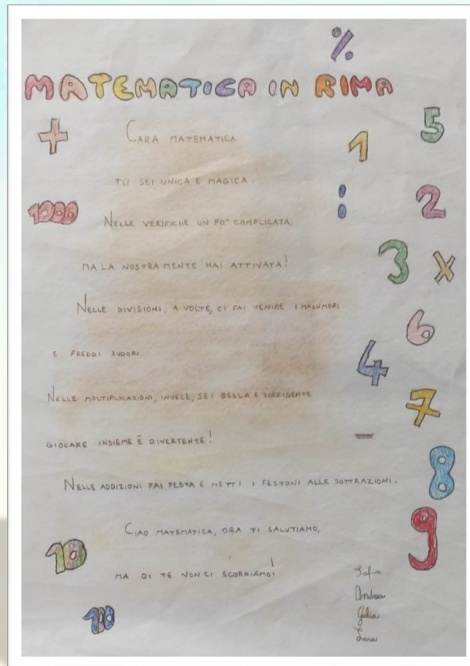 %
MATEMATICA IN RIMA
+
CARA MATEMATICA
1
5
TU SEI UNICA E MAGICA.
1000
:
2
NELLE VERIFICHE UN PO' COMPLICATA,
MA LA NOSTRA MENTE HAI ATTIVATA!
3 x
NELLE DIVISIONI, A VOLTE, CI FAI VENIRE I MALUMORI
6
E FREDDI SUDORI.
4
NELLE MOLTIPLICAZIONI, INVECE, SEI BELLA E SORRIDENTE
7
GIOCARE INSIEME È DIVERTENTE!
-
NELLE ADDIZIONI FAI FESTA E METTI I FESTONI ALLE SOTTRAZIONI.
8
CIAO MATEMATICA, ORA TI SALUTIAMO,
9
10
MA DI TE NON CI SCORDIAMO!
Andrea
Giulia